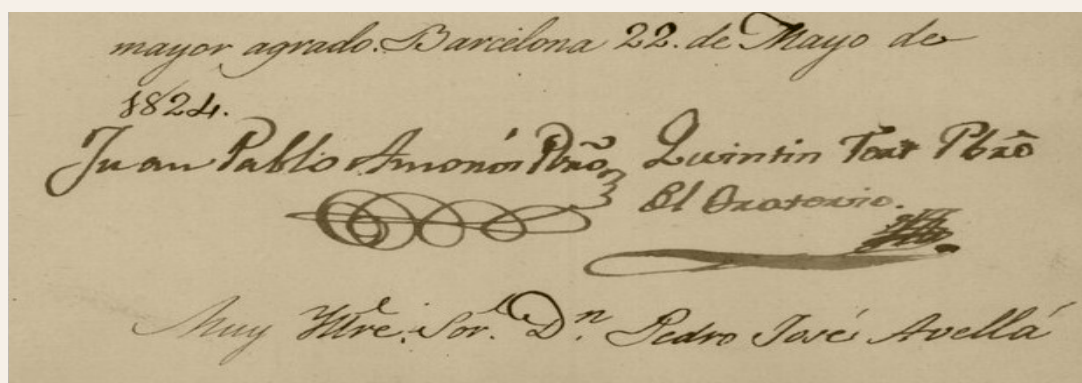 mayor agrado. Barcelona 22. de Mayo de
1824.
Juan Pablo Amonós Pbrõ
Quintin Tort Pbrõ
el Oratorio.
Muy Iltre. Sor. Dn. Pedro José Avellá